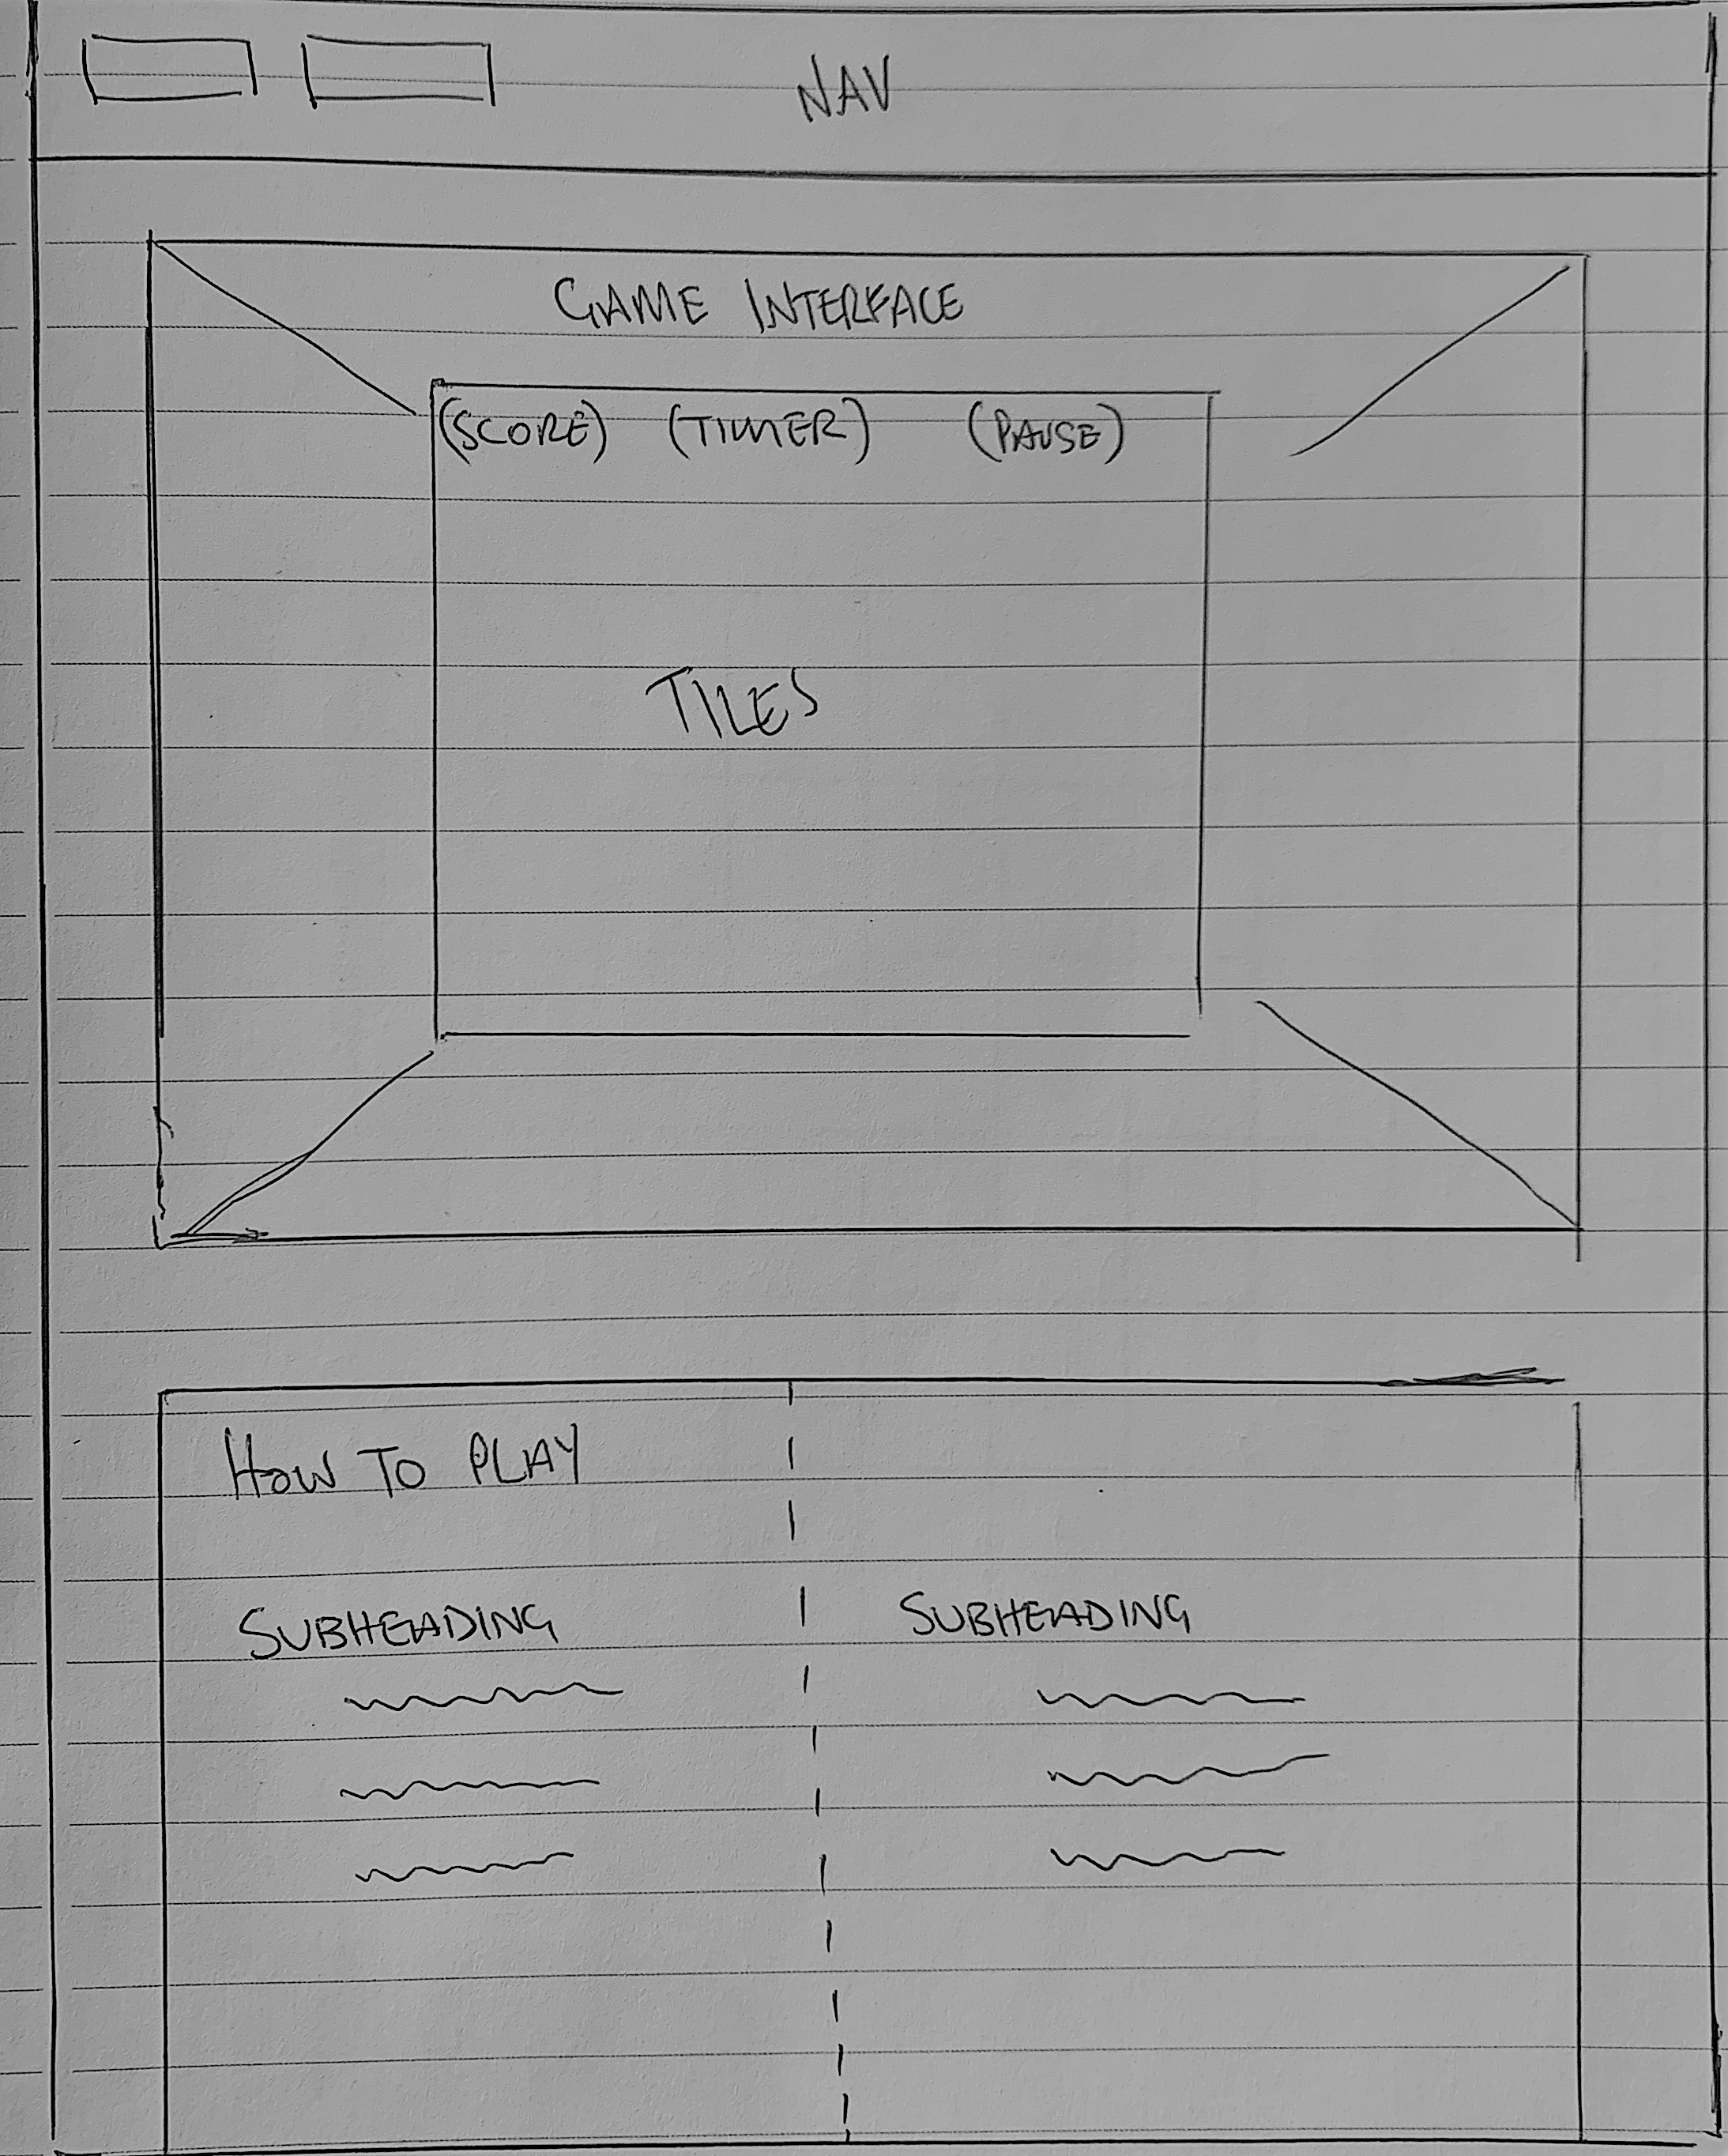 NAV
GAME INTERFACE
(SCORE) (TIMER) (PAUSE)
TILES
HOW TO PLAY
SUBHEADING SUBHEADING